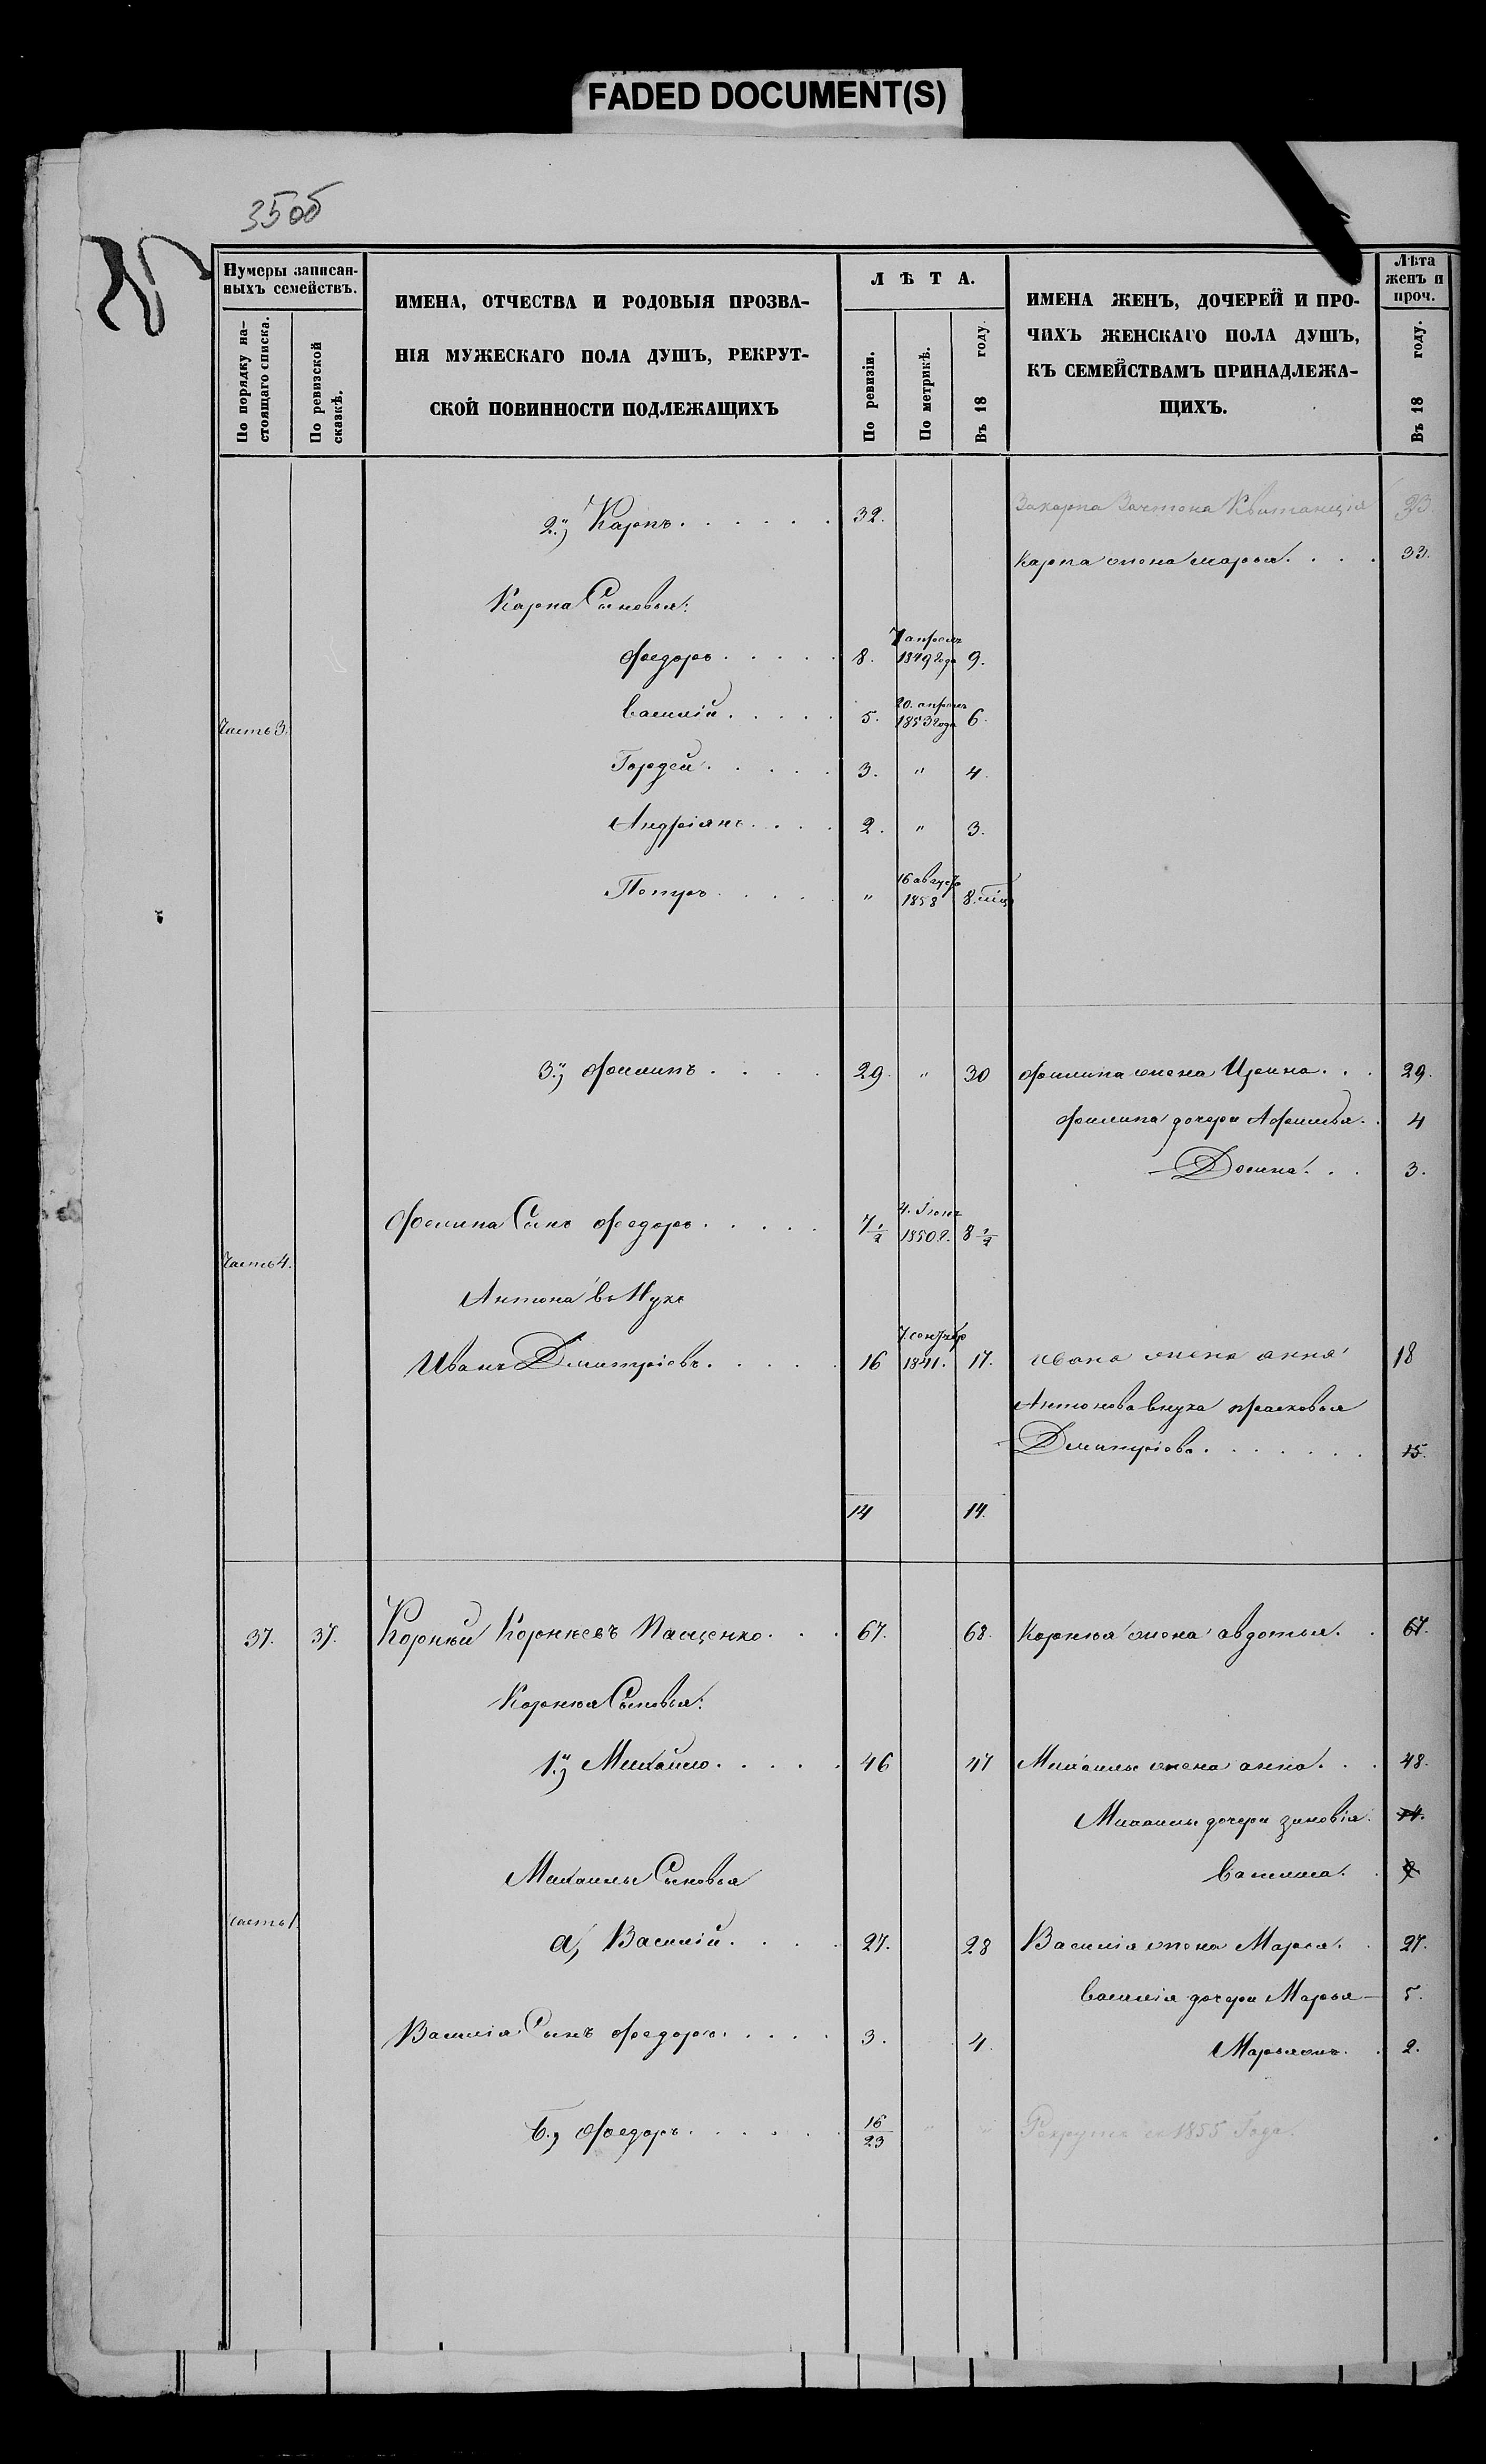 FADED DOCUMENT(S)
35об
Нумеры записан-
ныхъ семействъ.
По порядку на-
стоящаго списка.
По ревизской
сказкѣ.
ИМЕНА, ОТЧЕСТВА И РОДОВЫЯ ПРОЗВА-
НІЯ МУЖЕСКАГО ПОЛА ДУШЪ, РЕКРУТ-
СКОЙ ПОВИННОСТИ ПОДЛЕЖАЩИХЪ
ЛѢТА.
По ревизіи.
По метрикѣ.
Въ 18 году.
ИМЕНА ЖЕНЪ, ДОЧЕРЕЙ И ПРО-
ЧИХЪ ЖЕНСКАГО ПОЛА ДУШЪ,
КЪ СЕМЕЙСТВАМЪ ПРИНАДЛЕЖА-
ЩИХЪ.
Лѣта
женъ и
проч.
Въ 18 году.
2.й) Карпъ . . . . . . 32. Закарпа Зачтена Квитанція 23.
Карпа жена марья . . . . 33.
Карпа Сыновья:
Федоръ . . . . . 8. 7 апреля 1849 года 9.
Василій . . . . . 5. 20. апреля 1853 года 6.
Часть 3.
Гордей . . . . . 3. " 4.
Андріянъ . . . . 2. " 3.
Петръ . . . . . " 16 август 1858 8. міц
3.й) Филипъ . . . . 29. " 30 Филипа жена Ирина . . . 29.
Филипа дочери Афимья . . 4
Домна . . . 3.
Филипа Сынъ Федоръ . . . . . 7 1/2 4. Іюня 1850 г. 8 1/2
Часть 4.
Антона внукъ
Иванъ Дмитріевъ . . . . . 16 7. сентябр 1841. 17. Ивана жена анна 18
Антонова внука прасковья
Дмитріева . . . . . . . 15.
14 14.
37. 37. Корнѣй Корнѣевъ Пащенко . . . 67. 68. Корнѣя жена авдотья . . 67.
Корнѣя Сыновья:
1.й) Михайло . . . . . 46 47 Михайлы жена анна . . . 48.
Михайлы дочери зиновія. 14.
Михайлы Сыновья Василиса . .
Часть 1.
а, Василій . . . . 27. 28 Василія жена Марья . . 27.
Василія дочери Марья — 5.
Василія Сынъ Федоръ . . . . . 3. 4.
Марьяна . . 2.
б., Федоръ . . . . . . 16/23 " " Рекрутъ с 1855 Года.